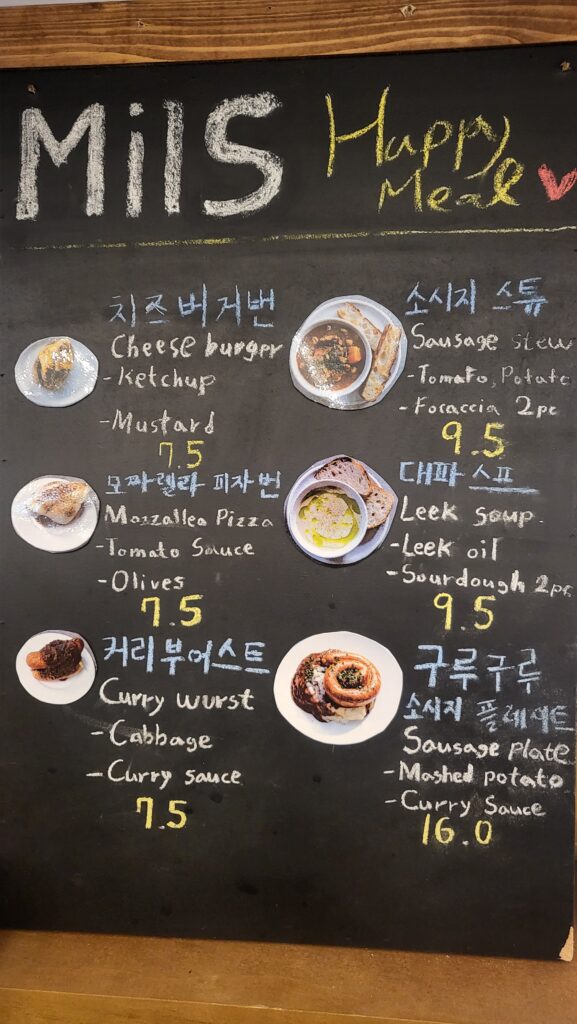 Mils
Happy Meal
치즈버거번
Cheese burger
-Ketchup
-Mustard
7.5
모짜렐라 피자번
Mozzallea Pizza
-Tomato Sauce
-Olives
7.5
커리부어스트
Curry wurst
-Cabbage
-Curry sauce
7.5
소시지 스튜
Sausage stew
-Tomato, Potato
-Focaccia 2pc
9.5
대파 스프
Leek soup
-Leek oil
-Sourdough 2pc
9.5
구루구루
소시지 플레이트
Sausage plate
-Mashed potato
-Curry Sauce
16.0